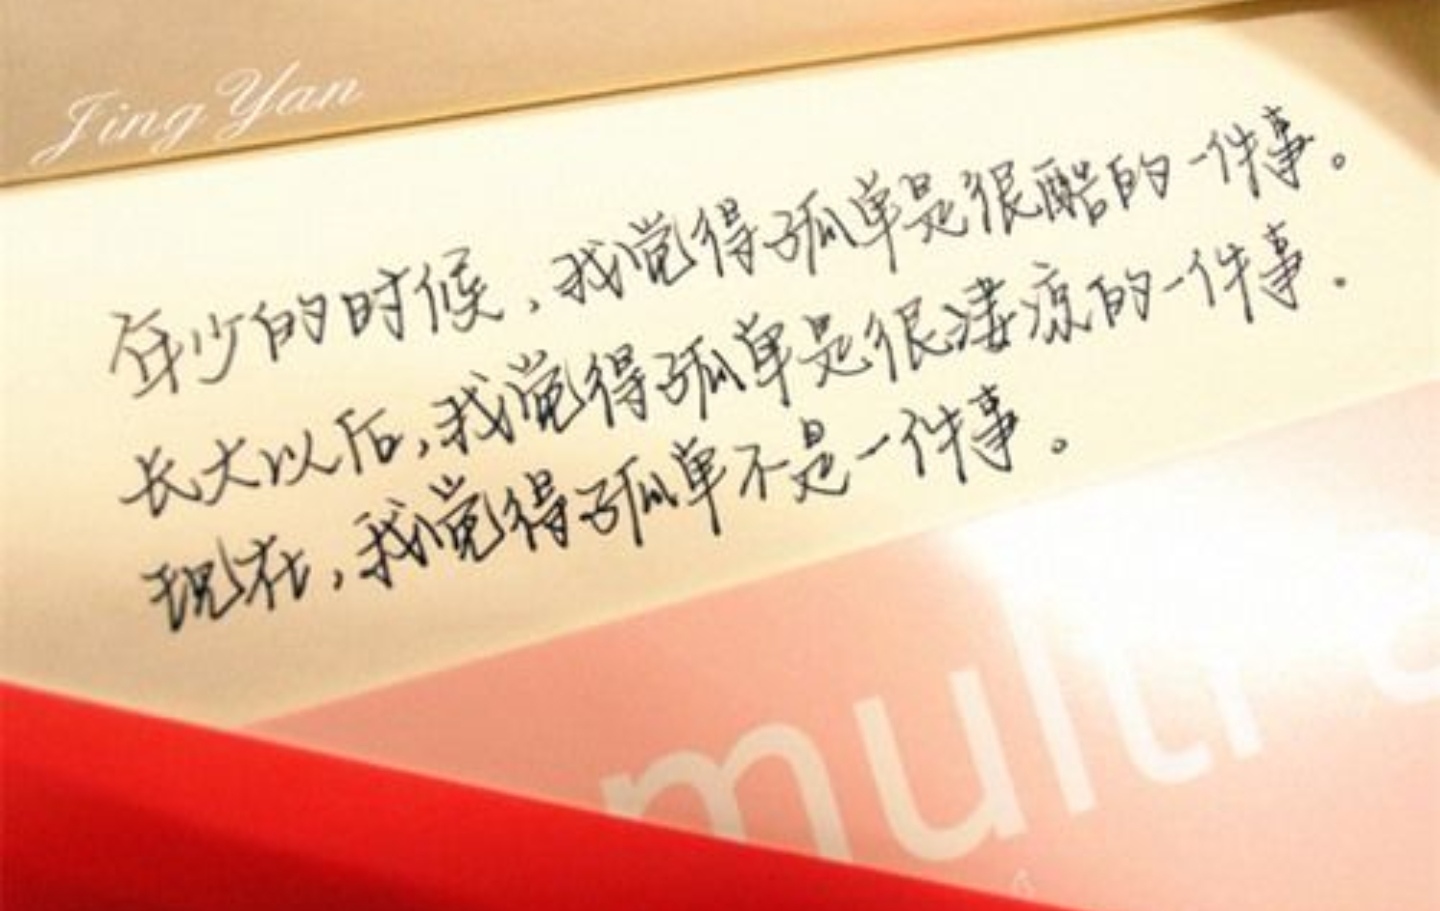 Jing Yan
年少的时候，我觉得孤单是很酷的一件事。
长大以后，我觉得孤单是很凄凉的一件事.
现在，我觉得孤单不是一件事。
multi